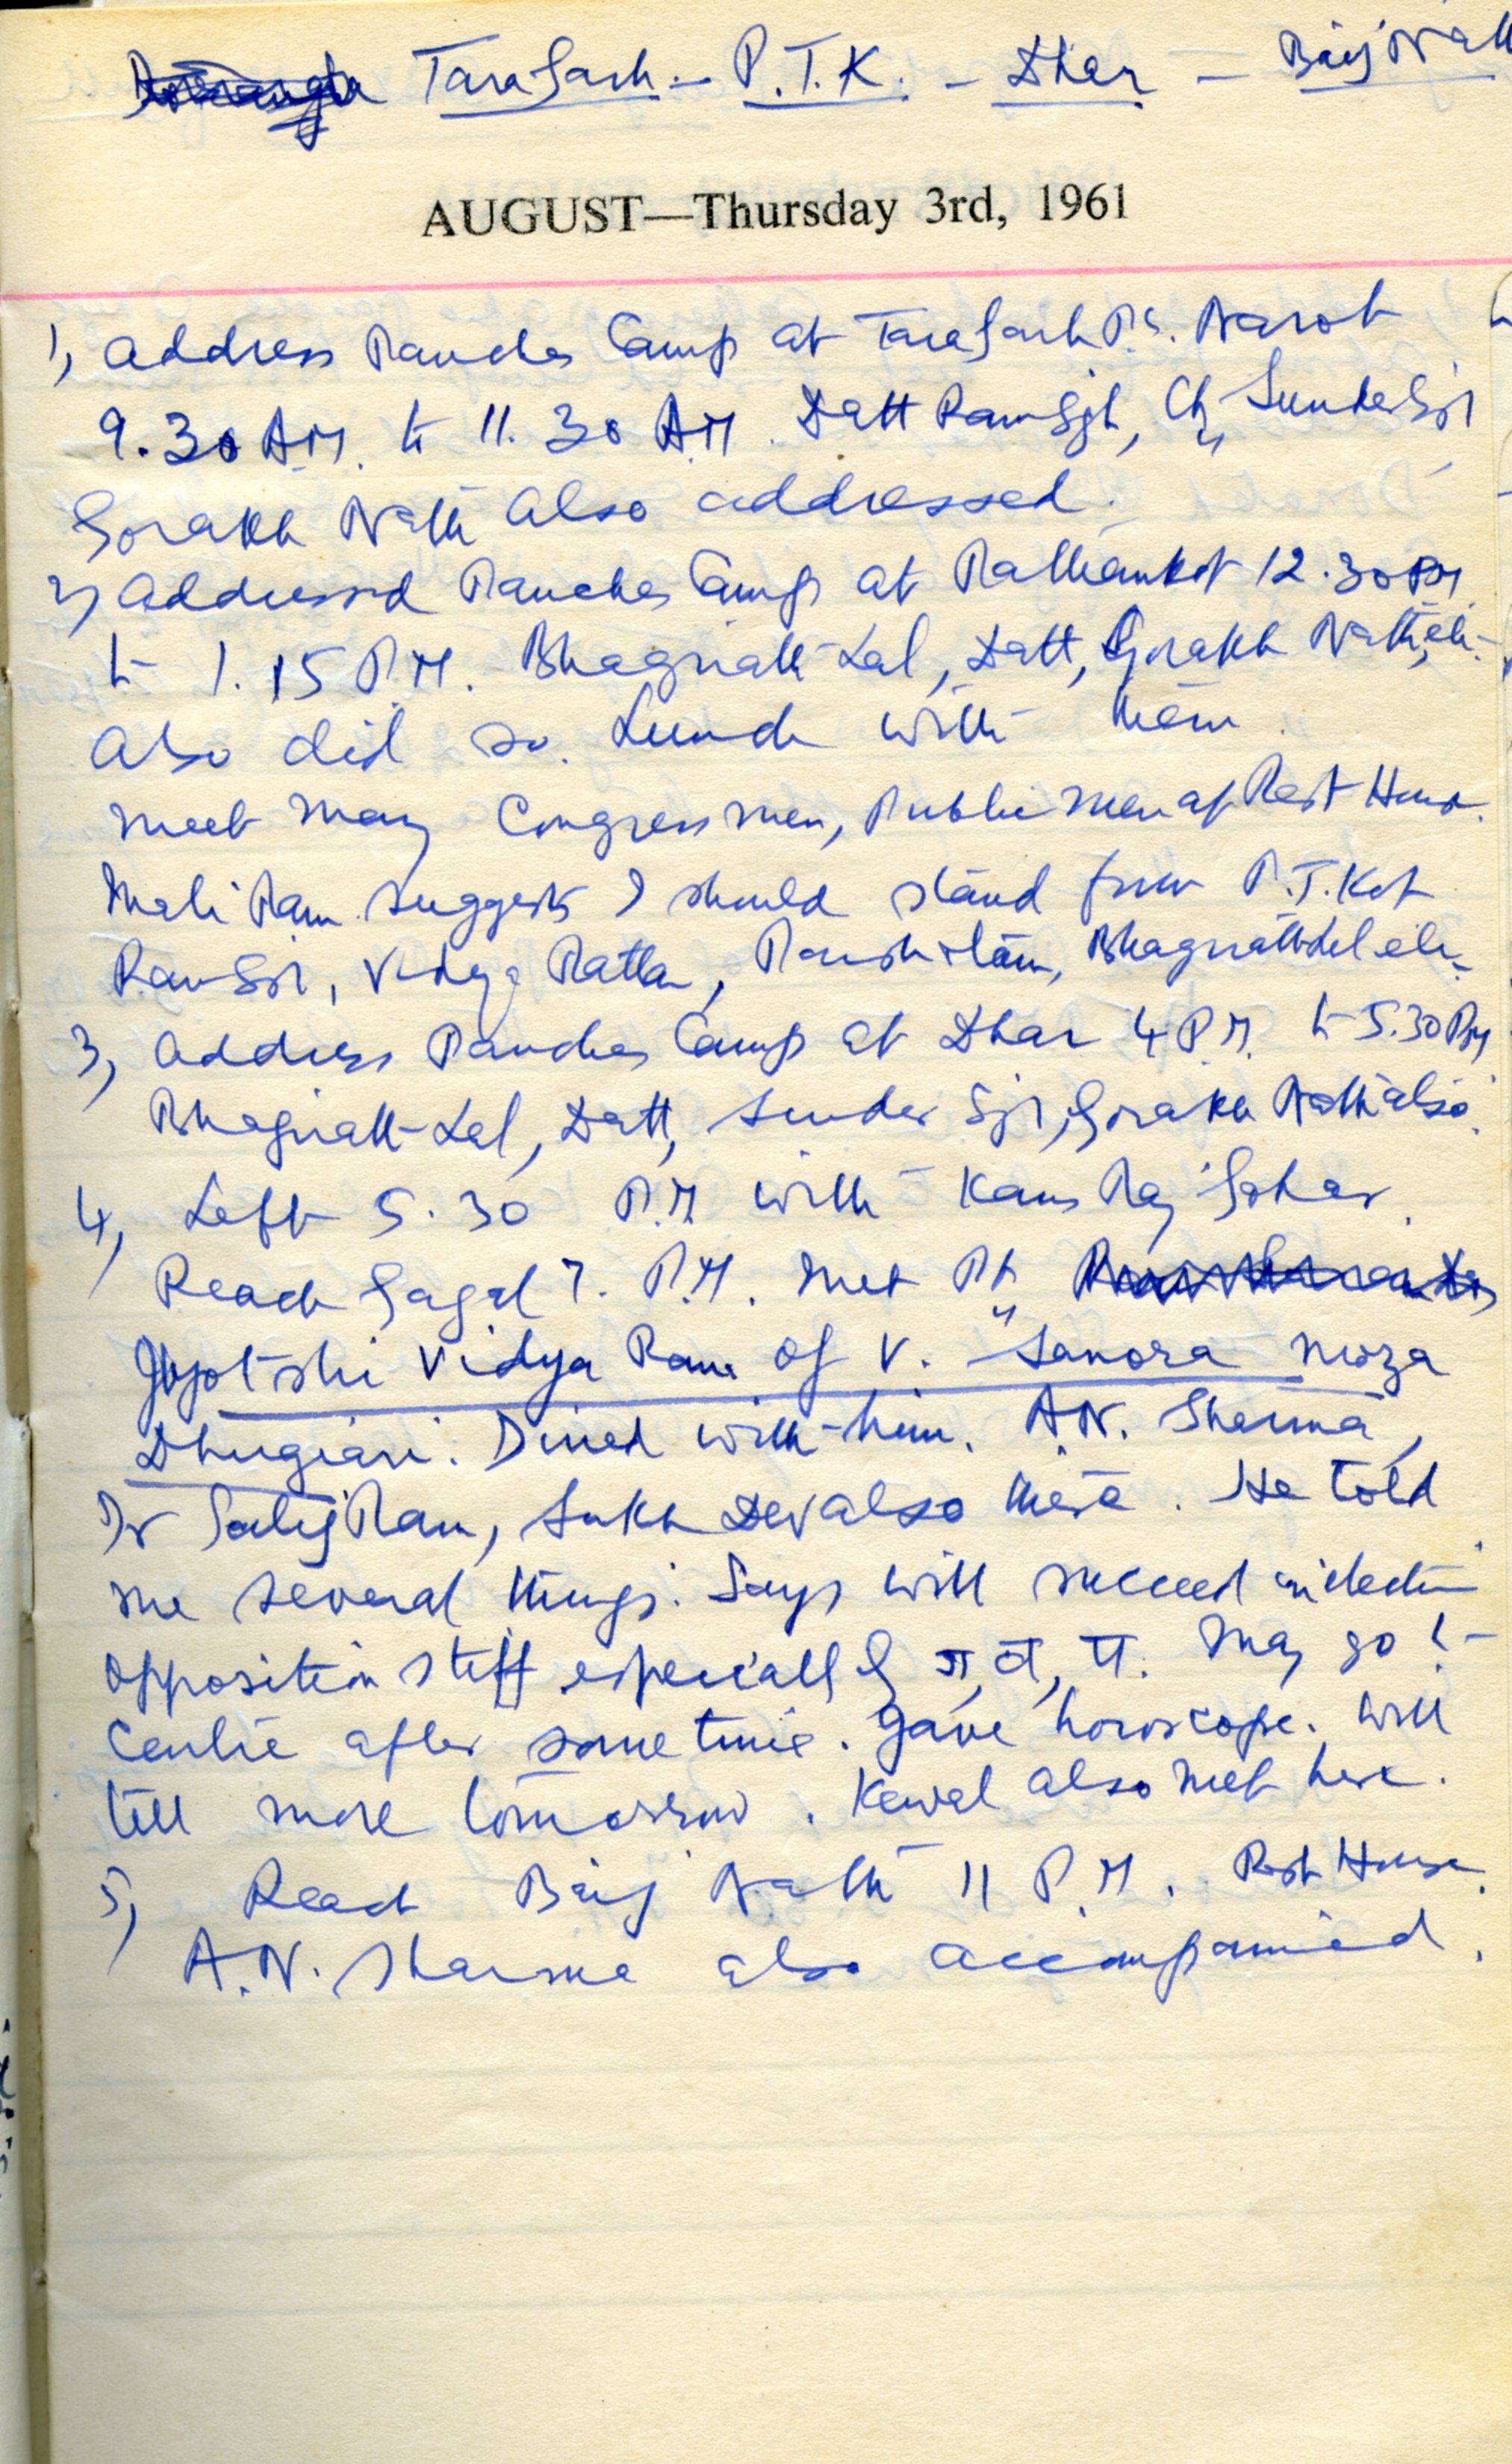 TaraGarh – P.T.K. – Dhar – Baij Nath
AUGUST—Thursday 3rd, 1961
1) Address Panches Camp at TaraGarh P.S. Narot
9.30 A.M. to 11.30 A.M. Datt Ram Sgh, Ch. Sunder Sgh
Gorakh Nath also addressed.
2) Addressed Panches Camp at Pathankot 12.30 PM
to 1.15 P.M. Bhagnath Lal, Datt, Gorakh Nath, etc.
also did so. Lunch with them.
Meet many Congress men, Public men at Rest House.
Mali Ram suggests I should stand from P.T.Kot
Ram Sgh, Vidya Rattan, Bhagnath Lal etc.
3) Address Panches Camp at Dhar 4 P.M. to 5.30 PM
Bhagnath Lal, Datt, Sunder Sgh, Gorakh Nath also.
4) Left 5.30 P.M. with Kans Raj Gohar.
Reach Gagal 7. P.M. Met Pt.
Jyotshi Vidya Ram of V. Samora moza
Dhugiari. Dined with him. A.N. Sharma,
Dr Salig Ram, Sukh Dev also there. He told
me several things. Says will succeed in election
opposition stiff especially of ग, ज, प. May go to
Centre after some time. Gave horoscope. Will
tell more tomorrow. Kewal also met here.
5) Reach Baij Nath 11 P.M. Rest House.
A.N. Sharma also accompanied.